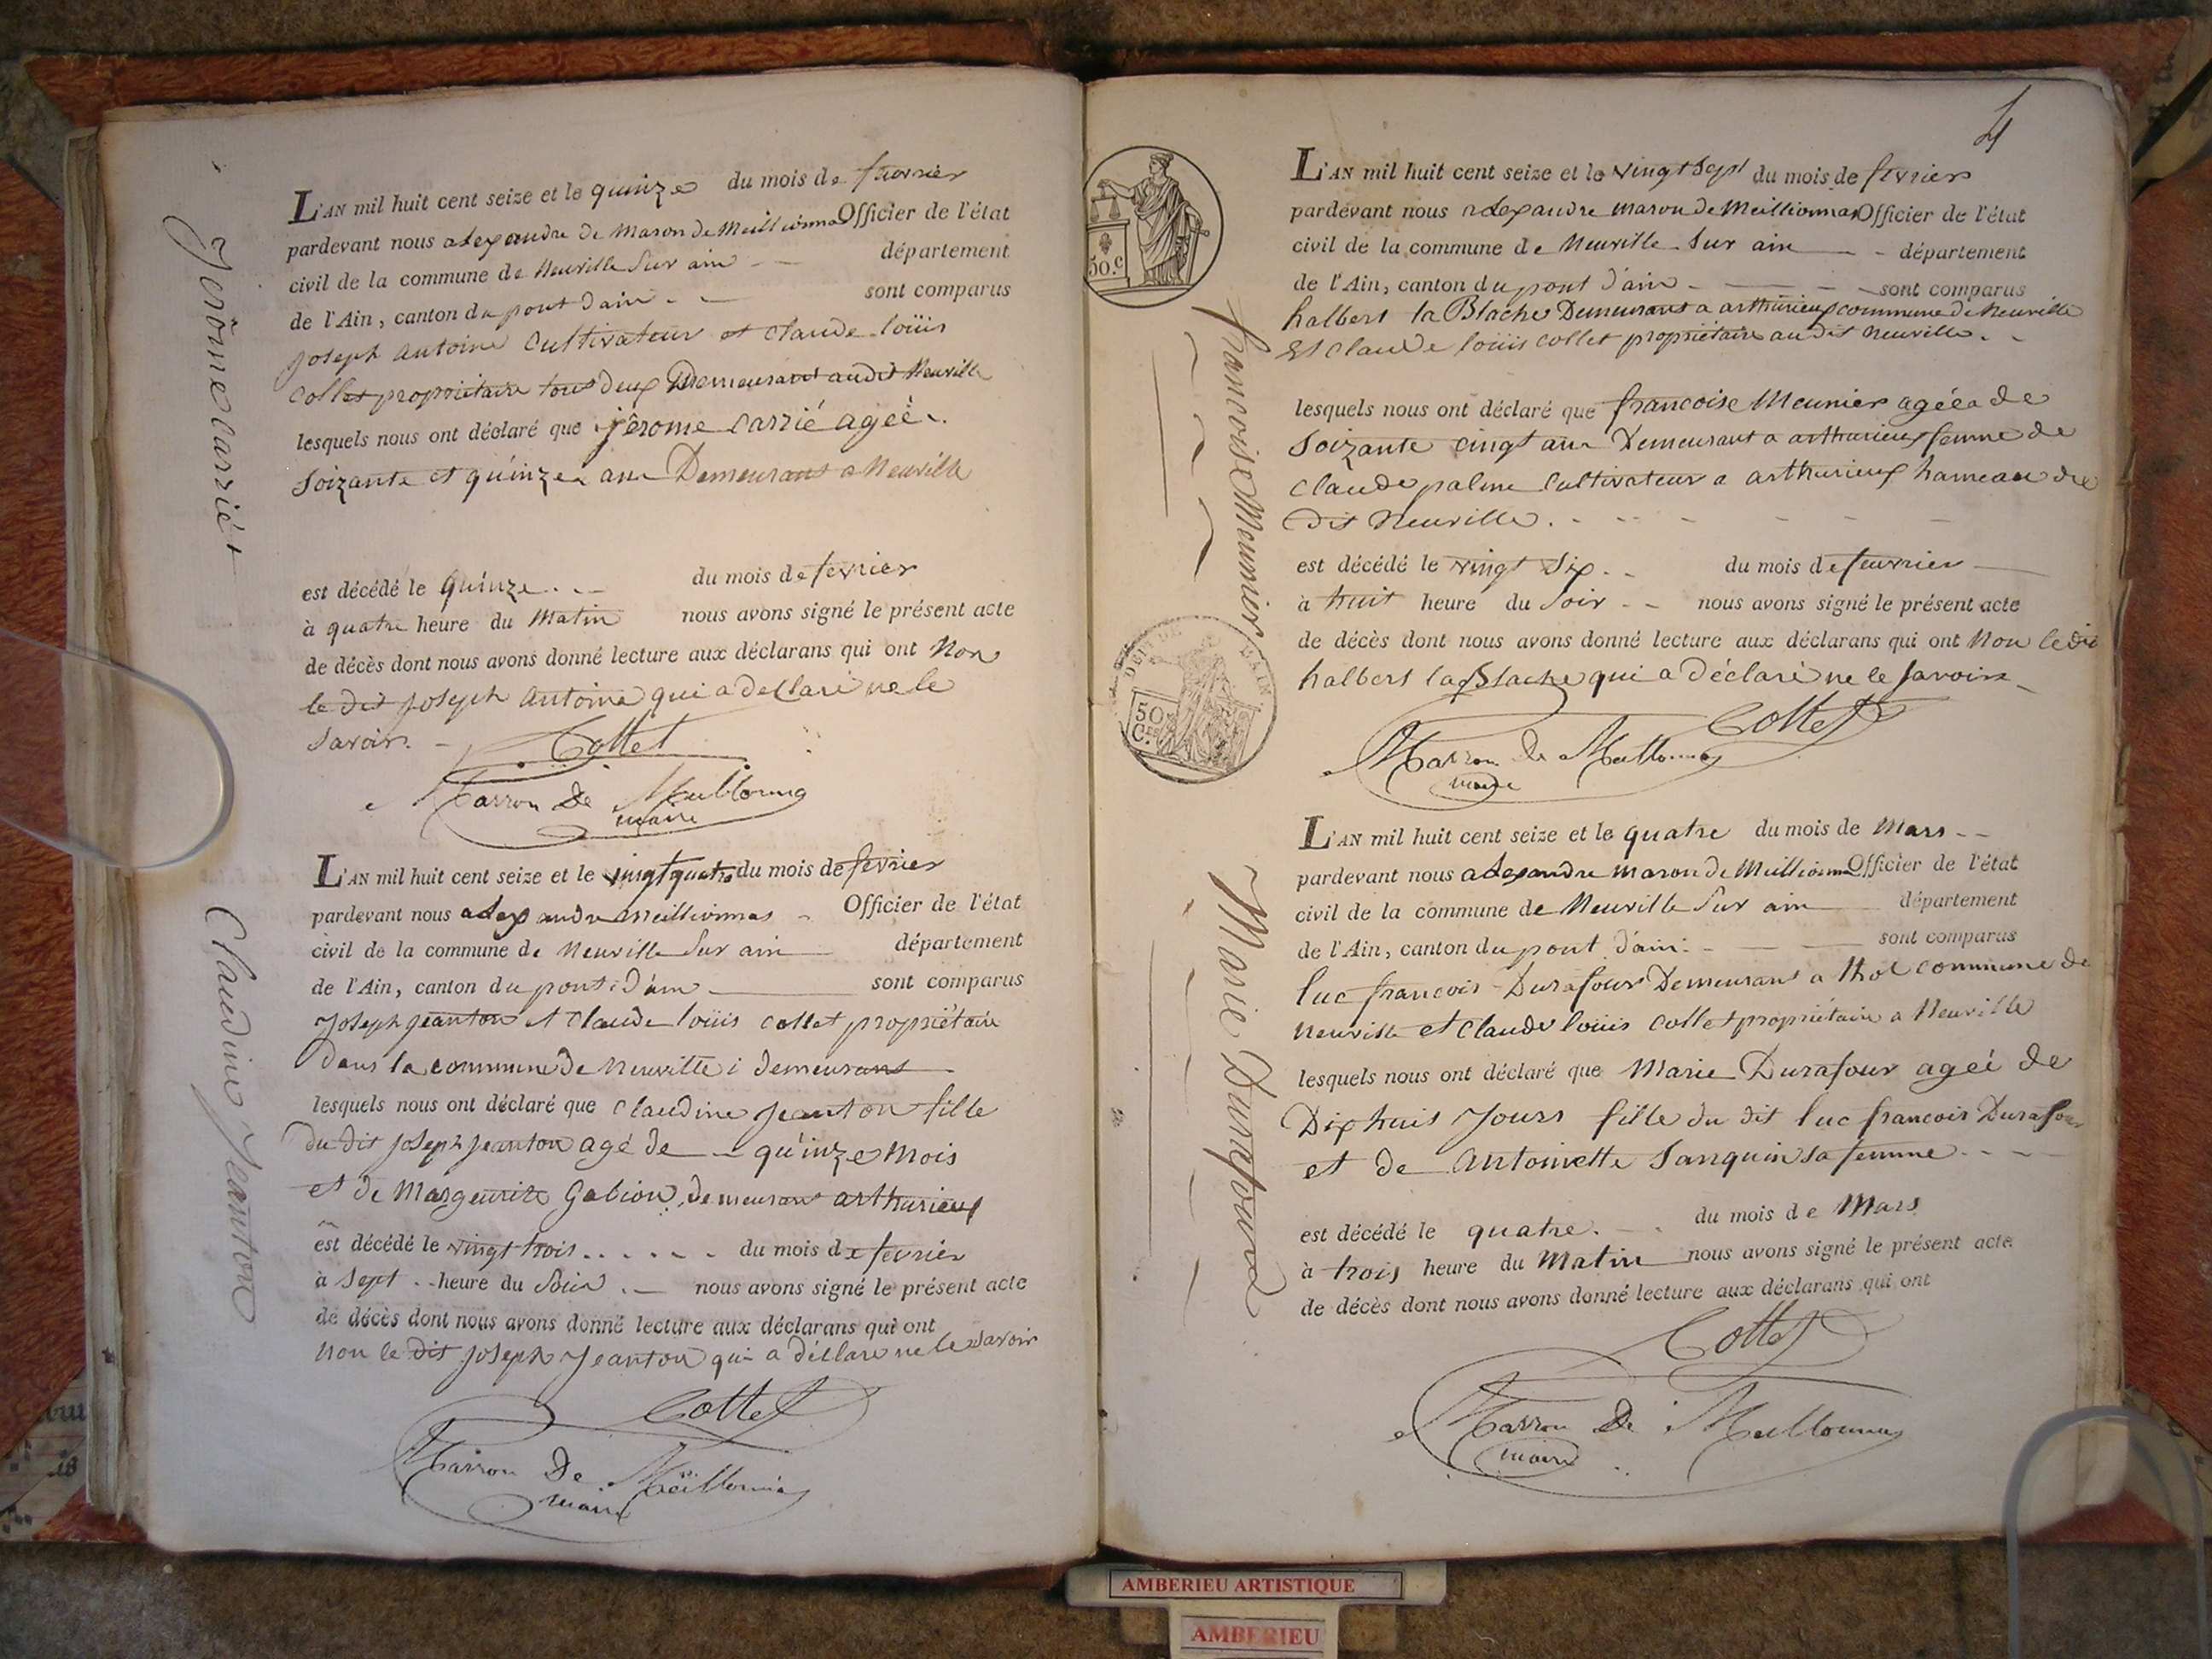 Jerôme Carrié
L'AN mil huit cent seize et le quinze du mois de fevrier
pardevant nous alexandre de Maron de Meillionnas Officier de l'état
civil de la commune de Neuville Sur ain département
de l'Ain, canton du pont d'ain sont comparus
joseph Antoine Cultivateur et Claude loüis
Collet propriétaire tous deux Demeurant audit Neuville
lesquels nous ont déclaré que jêrome Carrié ageé
Soizante et quinze ans Demeurant a Neuville
est décédé le Quinze du mois de fevrier
à quatre heure du Matin nous avons signé le présent acte
de décès dont nous avons donné lecture aux déclarans qui ont Non
le dit joseph Antoine qui a declaré ne le
Savoir.
Collet
Marron De Meillonnas
maire
Claudine Jeanton
L'AN mil huit cent seize et le vingt quatre du mois de fevrier
pardevant nous alexandre Meillionnas Officier de l'état
civil de la commune de Neuville Sur ain département
de l'Ain, canton du pont d'ain sont comparus
Joseph jeanton et Claude loüis collet propriétaire
Dans la commune De Neuville i demeurant
lesquels nous ont déclaré que Claudine Jeanton fille
du dit joseph jeanton agé de quinze Mois
et de Margeurite Gabion demeurant arthurieux
est décédé le vingt trois du mois de fevrier
à Sept heure du Soir nous avons signé le présent acte
de décès dont nous avons donné lecture aux déclarans qui ont
Non le dit joseph Jeanton qui a déclaré ne le savoir
Collet
Marron De Meillonnas
maire
4
50.C
francoise Meunier
L'AN mil huit cent seize et le vingt Sept du mois de fevrier
pardevant nous alexandre maron de Meillionnas Officier de l'état
civil de la commune de Neuville Sur ain département
de l'Ain, canton du pont d'ain sont comparus
halbert la Blache Demeurant a arthurieux commune de Neuville
Et Claude loüis collet propriétaire audit Neuville.
lesquels nous ont déclaré que francoise Meunier ageéa de
Soizante cinqt ans Demeurant a arthurieux femme de
Claude palme Cultivateur a arthurieux hameau du
dit Neuville.
est décédé le vingt Six du mois de feuvrier
à huit heure du Soir nous avons signé le présent acte
de décès dont nous avons donné lecture aux déclarans qui ont Non le dit
halbert la Blache qui a déclaré ne le savoire
Collet
Marron De Meillonnas
maire
50
C.
Marie Durafour
L'AN mil huit cent seize et le quatre du mois de Mars
pardevant nous alexandre maron de Meillionnas Officier de l'état
civil de la commune de Neuville Sur ain département
de l'Ain, canton du pont d'ain sont comparus
luc francois Durafour Demeurant a thol commune de
Neuville et Claude loüis collet propriétaire a Neuville
lesquels nous ont déclaré que Marie Durafour ageé de
Dix huit Jours fille du dit luc francois Durafour
et de Antoinette Sanquin sa femme
est décédé le quatre. du mois de Mars
à trois heure du Matin nous avons signé le présent acte
de décès dont nous avons donné lecture aux déclarans qui ont
Collet
Marron De Meillonnas
maire
AMBERIEU ARTISTIQUE
AMBERIEU